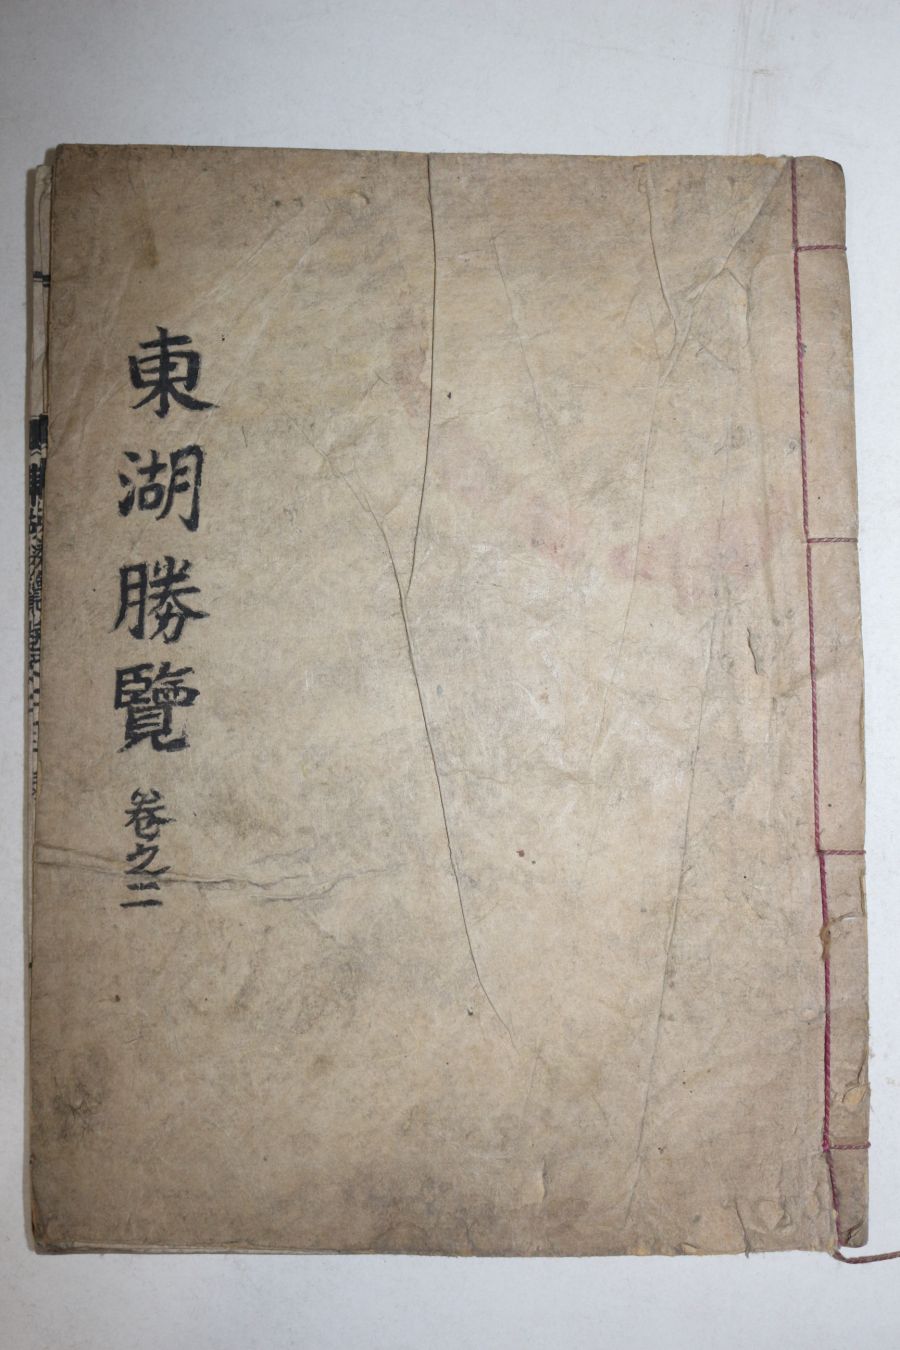 東湖勝覽 卷之二